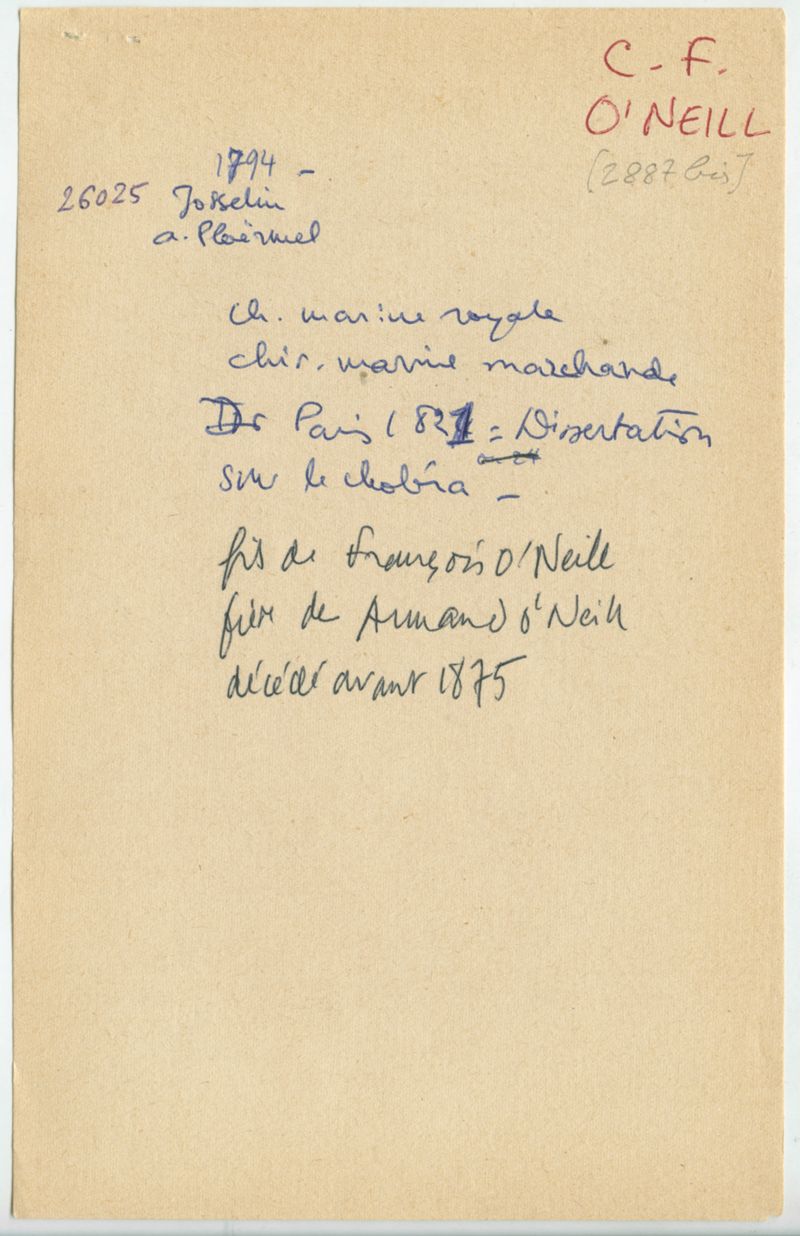 C. - F.
O'NEILL
[2887 bis]
1794 -
26025 Josselin
a. Ploërmel
ch. marine royale
chir. marine marchande
Dr Paris 1821 = Dissertation
sur le choléra -
fils de François O'Neill
frère de Armand O'Neill
décédé avant 1875